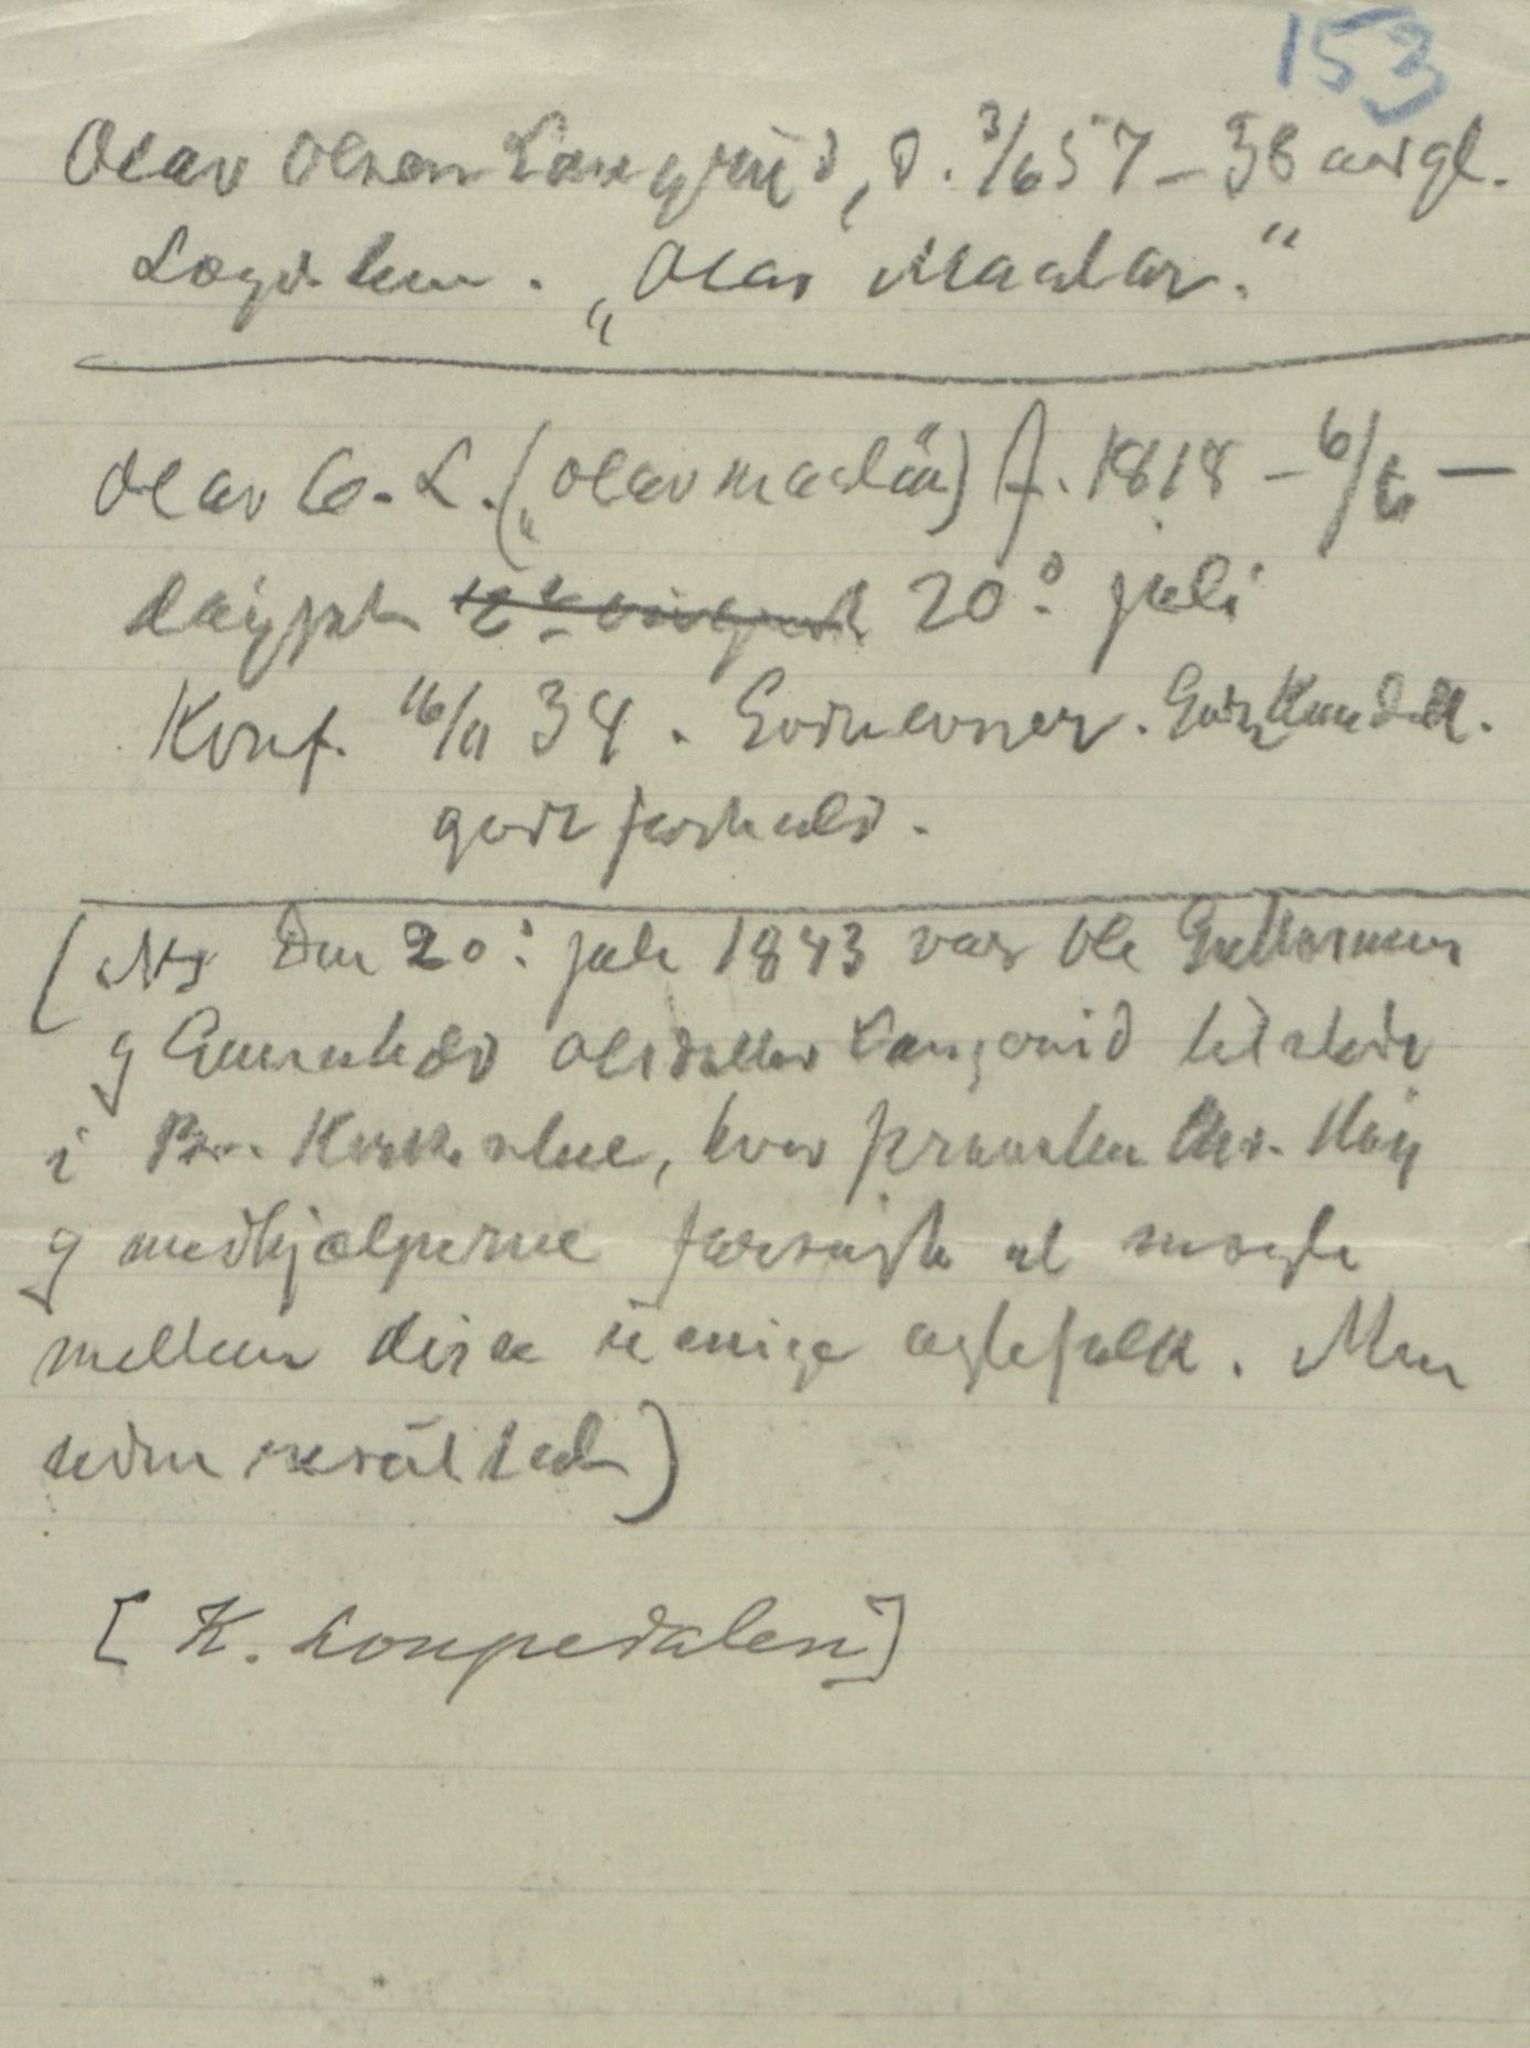 153
Olav Olsen Langerud, d. 3/6 57 – 38 aar gl.
Logst hen. „Olav Maalar."
Olav O. L. („Olav maalar") f. 1818 – 6/6 –
døypt 20: juli
Konf. 16/11 34. Godt kundsk.
godt forhold.
(N.B. Den 20: juli 1843 var Ole Guttormsen
og Gunnhild Olsdatter Langerud tilstede
i Kirkestue, hvor presten Chr. Høy
og medhjælperne forsøgte at mægle
mellem disse uenige egtefolk. Men
uden resultat)
[K. Loupedalen]